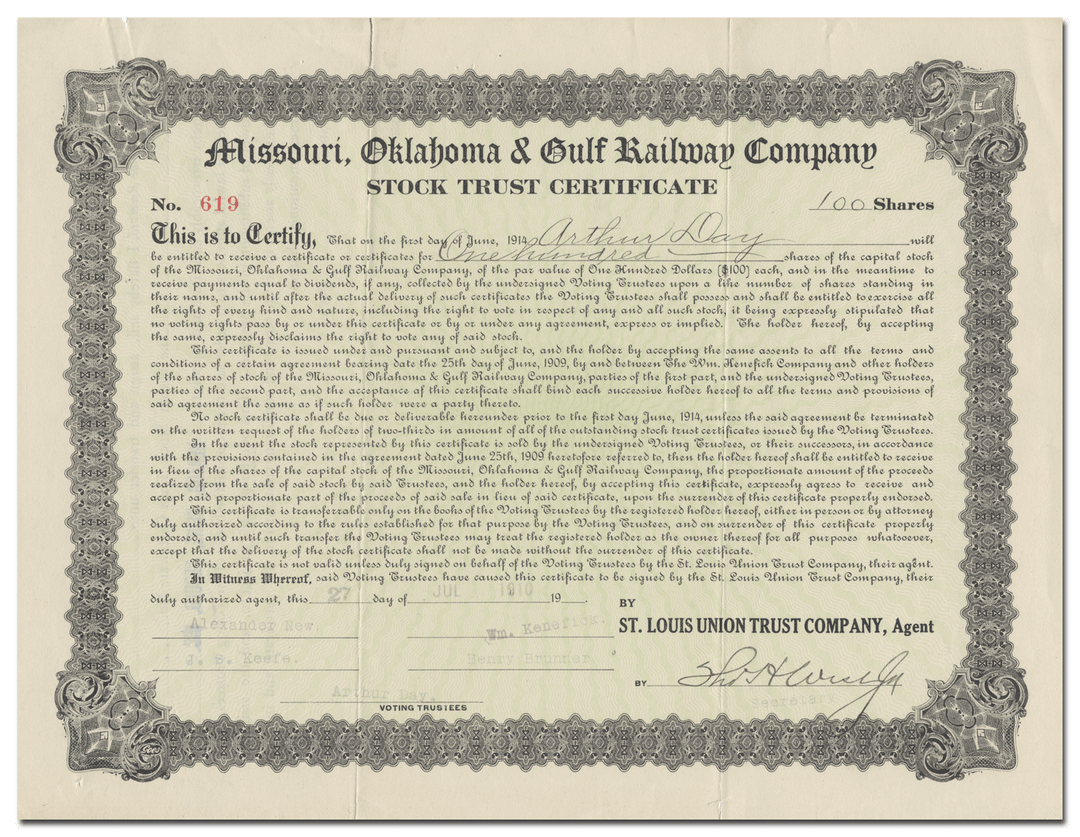 Missouri, Oklahoma & Gulf Railway Company
STOCK TRUST CERTIFICATE
No. 619
100 Shares
This is to Certify, That on the first day of June, 1914 Arthur Day will
be entitled to receive a certificate or certificates for One hundred shares of the capital stock
of the Missouri, Oklahoma & Gulf Railway Company, of the par value of One Hundred Dollars ($100) each, and in the meantime to
receive payments equal to dividends, if any, collected by the undersigned Voting Trustees upon a like number of shares standing in
their name, and until after the actual delivery of such certificates the Voting Trustees shall possess and shall be entitled to exercise all
the rights of every kind and nature, including the right to vote in respect of any and all such stock, it being expressly stipulated that
no voting rights pass by or under this certificate or by or under any agreement, express or implied. The holder hereof, by accepting
the same, expressly disclaims the right to vote any of said stock.
This certificate is issued under and pursuant and subject to, and the holder by accepting the same assents to all the terms and
conditions of a certain agreement bearing date the 25th day of June, 1909, by and between The Wm. Kenefick Company and other holders
of the shares of stock of the Missouri, Oklahoma & Gulf Railway Company, parties of the first part, and the undersigned Voting Trustees,
parties of the second part, and the acceptance of this certificate shall bind each successive holder hereof to all the terms and provisions of
said agreement the same as if such holder were a party thereto.
No stock certificate shall be due or deliverable hereunder prior to the first day June, 1914, unless the said agreement be terminated
on the written request of the holders of two-thirds in amount of all of the outstanding stock trust certificates issued by the Voting Trustees.
In the event the stock represented by this certificate is sold by the undersigned Voting Trustees, or their successors, in accordance
with the provisions contained in the agreement dated June 25th, 1909 heretofore referred to, then the holder hereof shall be entitled to receive
in lieu of the shares of the capital stock of the Missouri, Oklahoma & Gulf Railway Company, the proportionate amount of the proceeds
realized from the sale of said stock by said Trustees, and the holder hereof, by accepting this certificate, expressly agress to receive and
accept said proportionate part of the proceeds of said sale in lieu of said certificate, upon the surrender of this certificate properly endorsed.
This certificate is transferrable only on the books of the Voting Trustees by the registered holder hereof, either in person or by attorney
duly authorized according to the rules established for that purpose by the Voting Trustees, and on surrender of this certificate properly
endorsed, and until such transfer the Voting Trustees may treat the registered holder as the owner thereof for all purposes whatsoever,
except that the delivery of the stock certificate shall not be made without the surrender of this certificate.
This certificate is not valid unless duly signed on behalf of the Voting Trustees by the St. Louis Union Trust Company, their agent.
In Witness Whereof, said Voting Trustees have caused this certificate to be signed by the St. Louis Union Trust Company, their
duly authorized agent, this 27 day of JUL 1910 19
BY
Alexander New.
Wm. Kenefick.
ST. LOUIS UNION TRUST COMPANY, Agent
J. S. Keefe.
Henry Brunner
BY Thos H West Jr
Secretary
Arthur Day.
VOTING TRUSTEES